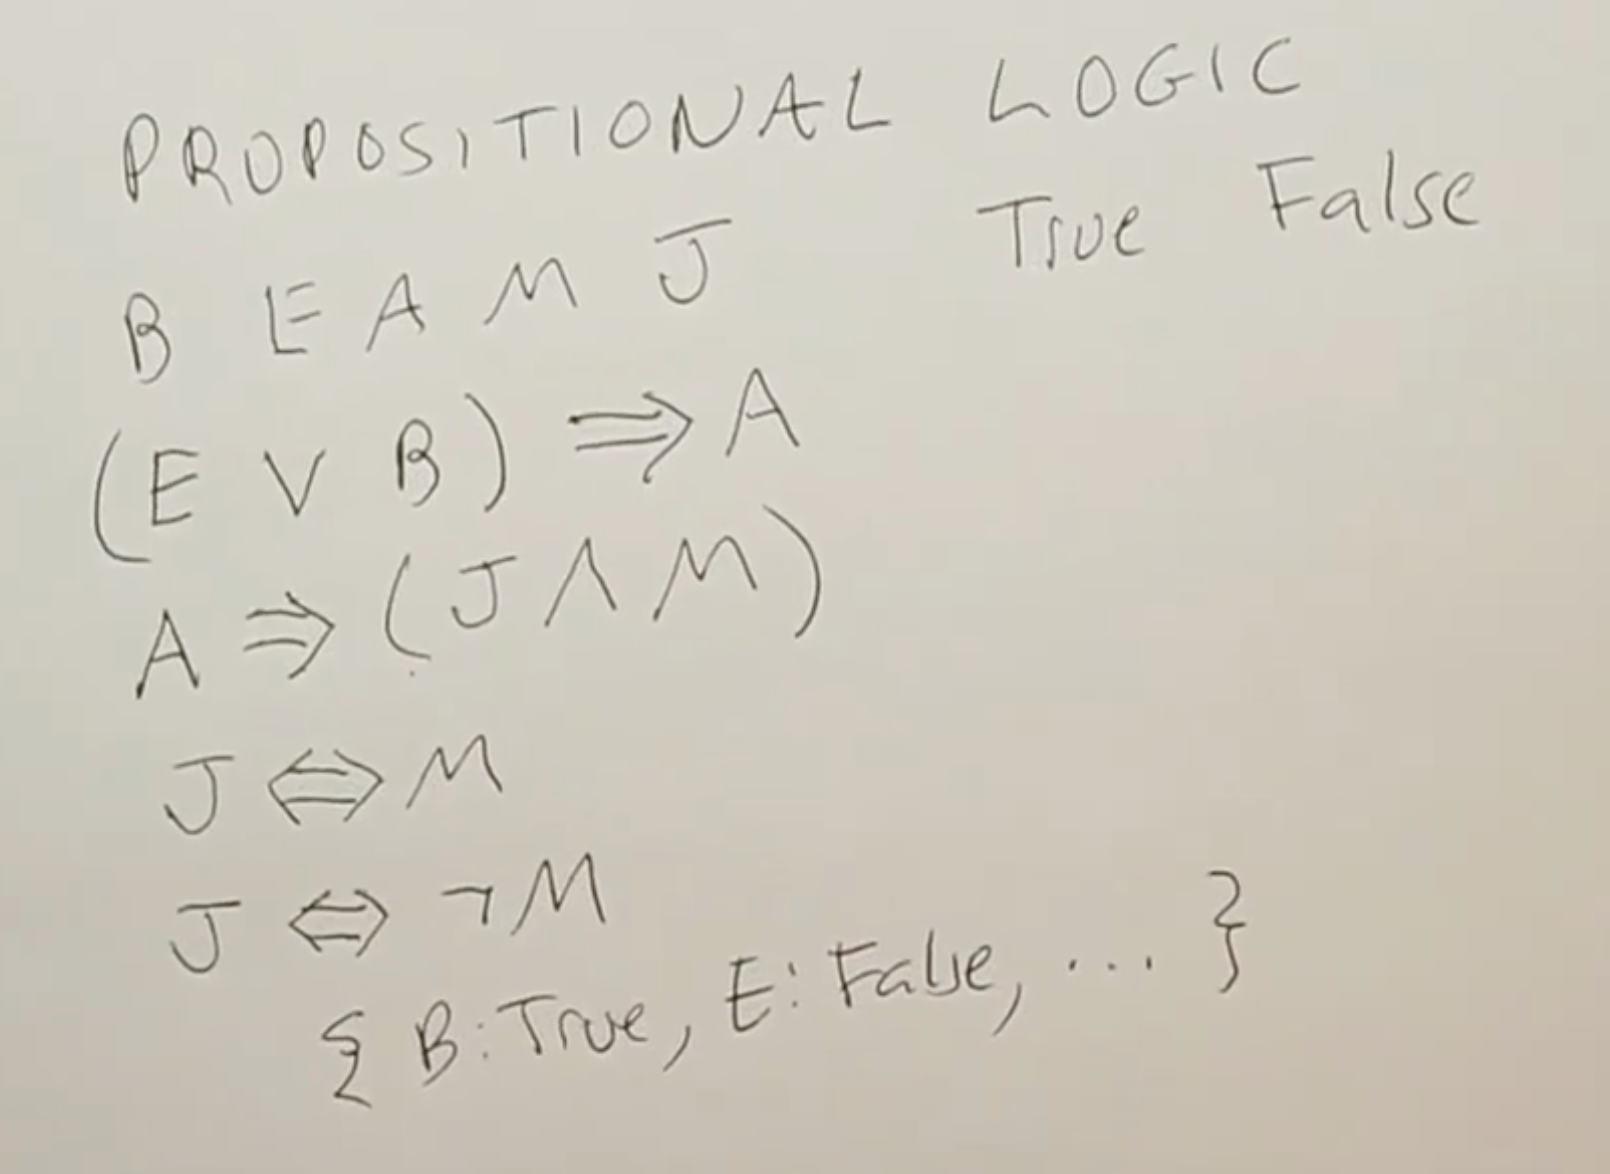 PROPOSITIONAL LOGIC
True False
B E A M J
(E ∨ B) ⇒ A
A ⇒ (J ∧ M)
J ⇔ M
J ⇔ ¬M
{B:True, E:False, ...}